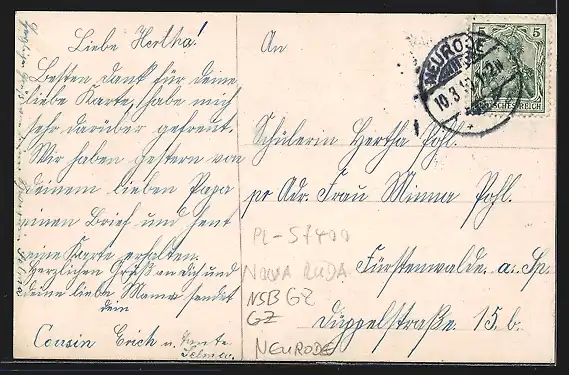 Liebe Hertha!
Besten Dank für deine
liebe Karte, habe mich
sehr darüber gefreut.
Wir haben gestern von
deinem lieben Papa
einen Brief und heut
eine Karte erhalten.
Herzlichen Gruß an dich und
deine liebe Mama sendet
dein
Cousin Erich u. Tante
Selma.
An
Schülerin Hertha Pohl.
pr Adr. Frau Minna Pohl.
Fürstenwalde a. Sp.
Düppelstraße 15. b.
NEURODE
10.3.
5
DEUTSCHES REICH
PL-57400
NOWA RUDA
NSB GZ
GZ
NEURODE